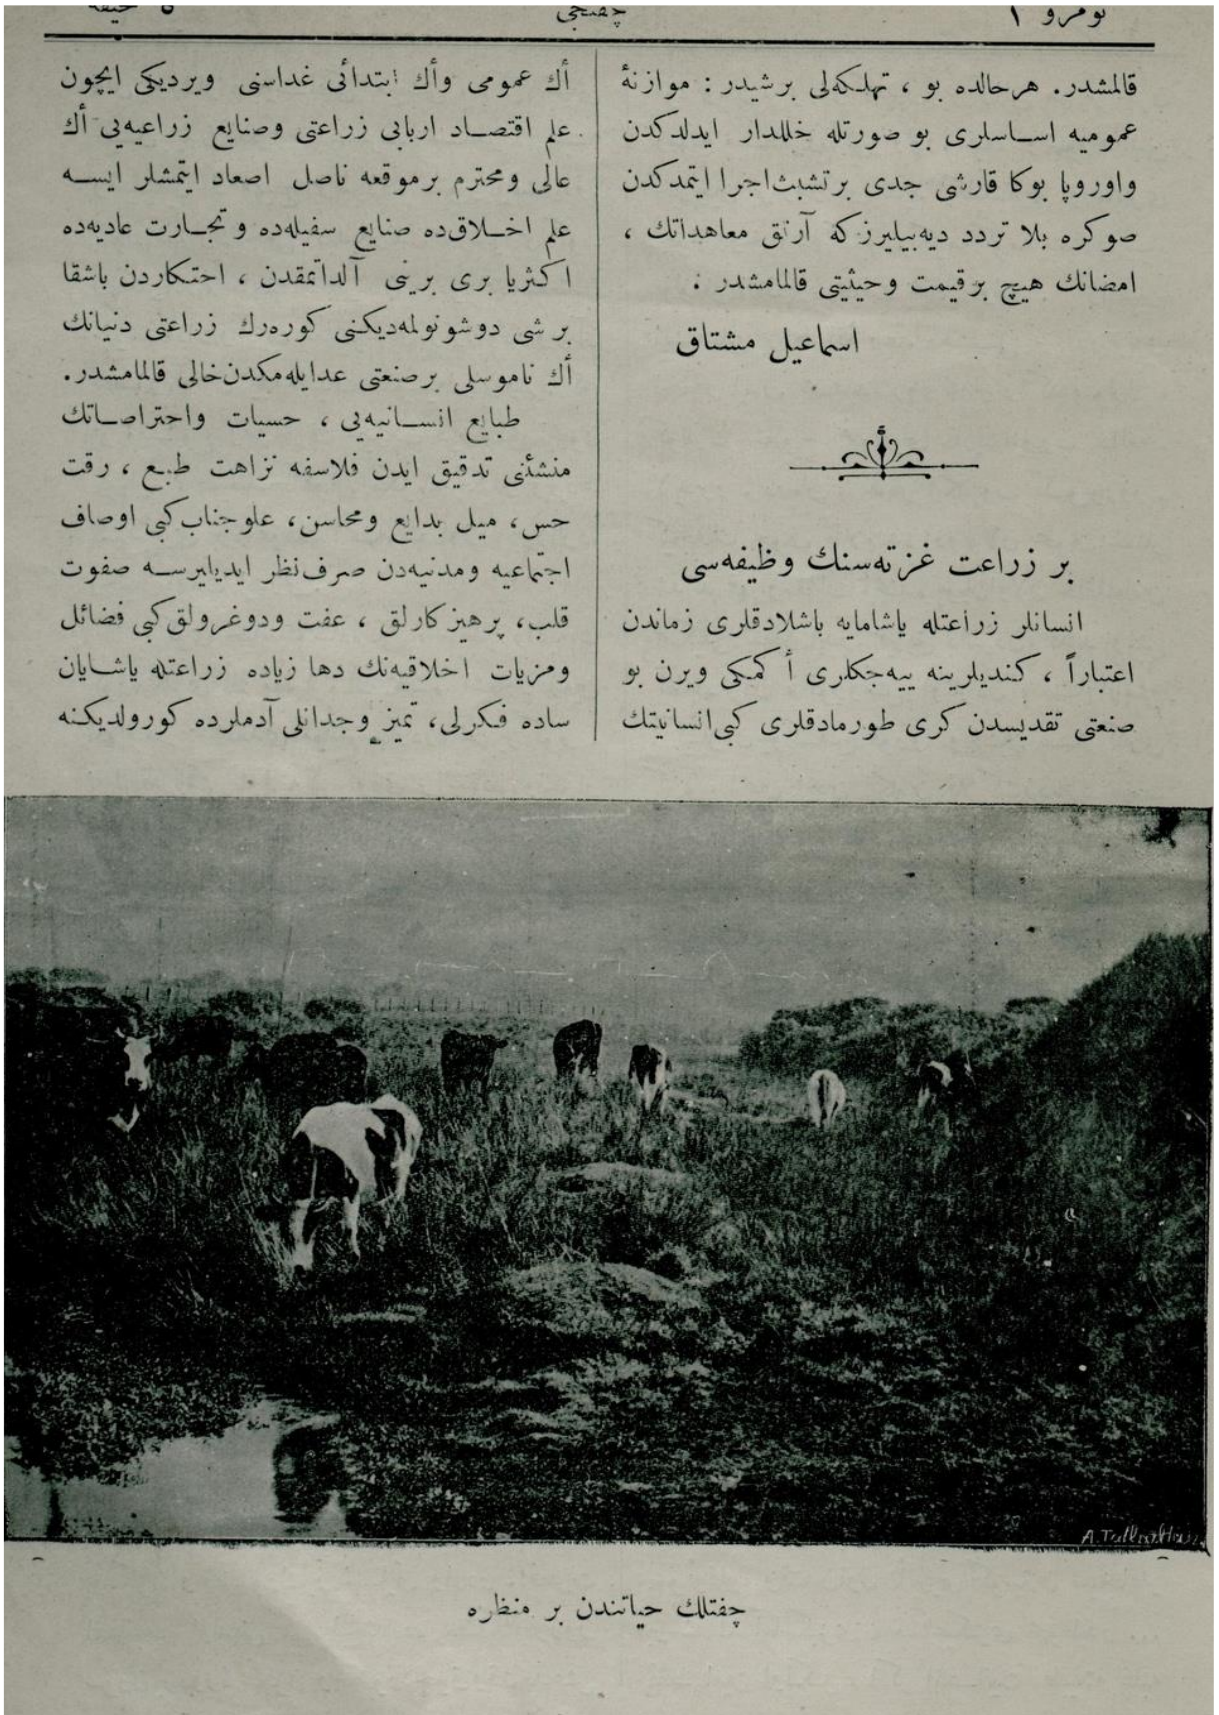 نومرو ١
چفتجی
٥ صحیفه
قالمشدر. هرحالده بو ، تهلكه‌لی برشیدر : موازنهٔ
عمومیه اساسلری بو صورتله خللدار ایدلدكدن
واوروپا بوكا قارشی جدی برتشبث اجرا ایتمدكدن
صوكره بلا تردد دیه‌بیلیرزكه آرتق معاهداتك ،
امضانك هیچ برقیمت وحیثیتی قالمامشدر .
اسماعیل مشتاق
بر زراعت غزته‌سنك وظیفه‌سی
انسانلر زراعتله یاشامایه باشلادقلری زماندن
اعتباراً ، كندیلرینه ییه‌جكلری أكمكی ویرن بو
صنعتی تقدیسدن كری طورمادقلری كبی انسانیتك
أك عمومی وأك ابتدائی غداسنی ویردیكی ایچون
علم اقتصاد اربابی زراعتی وصنایع زراعیه‌یی أك
عالی ومحترم برموقعه ناصل اصعاد ایتمشلر ایسه
علم اخلاق‌ده صنایع سفیله‌ده و تجارت عادیه‌ده
اكثریا بری برینی آلداتمقدن ، احتكاردن باشقا
بر شی دوشونولمه‌دیكنی كوره‌رك زراعتی دنیانك
أك ناموسلی برصنعتی عدایله‌مكدن خالی قالمامشدر.
طبایع انسانیه‌یی ، حسیات واحتراصاتك
منشئنی تدقیق ایدن فلاسفه نزاهت طبع ، رقت
حس، میل بدایع ومحاسن، علوجناب كبی اوصاف
اجتماعیه ومدنیه‌دن صرف‌نظر ایدیلیرسه صفوت
قلب، پرهیزكارلق ، عفت ودوغرولق كبی فضائل
ومزیات اخلاقیه‌نك دها زیاده زراعتله یاشایان
ساده فكرلی، تمیز وجدانلی آدملرده كورولدیكنه
چفتلك حیاتندن بر منظره